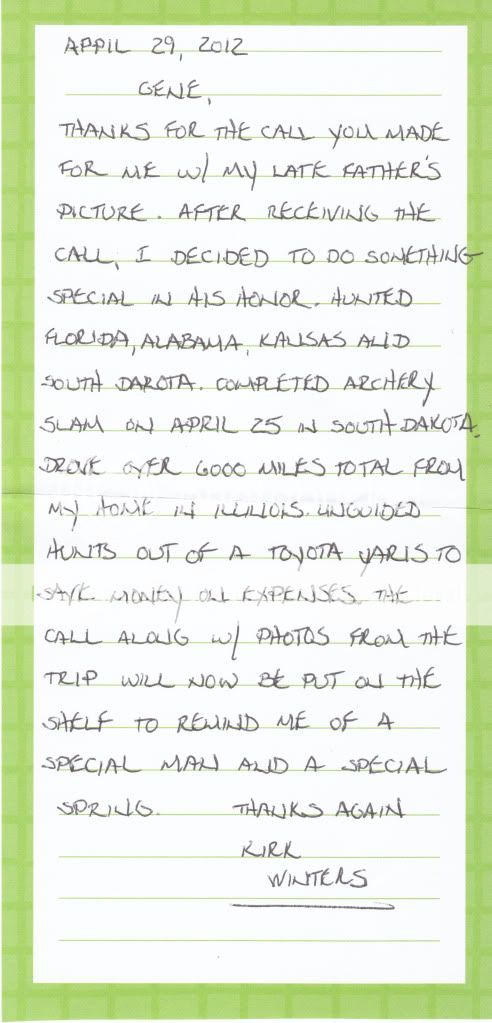 APRIL 29, 2012
GENE,
THANKS FOR THE CALL YOU MADE
FOR ME W/ MY LATE FATHER'S
PICTURE. AFTER RECEIVING THE
CALL, I DECIDED TO DO SOMETHING
SPECIAL IN HIS HONOR. HUNTED
FLORIDA, ALABAMA, KANSAS AND
SOUTH DAKOTA. COMPLETED ARCHERY
SLAM ON APRIL 25 IN SOUTH DAKOTA.
DROVE OVER 6000 MILES TOTAL FROM
MY HOME IN ILLINOIS. UNGUIDED
HUNTS OUT OF A TOYOTA YARIS TO
SAVE MONEY ON EXPENSES. THE
CALL ALONG W/ PHOTOS FROM THE
TRIP WILL NOW BE PUT ON THE
SHELF TO REMIND ME OF A
SPECIAL MAN AND A SPECIAL
SPRING. THANKS AGAIN
KIRK
WINTERS